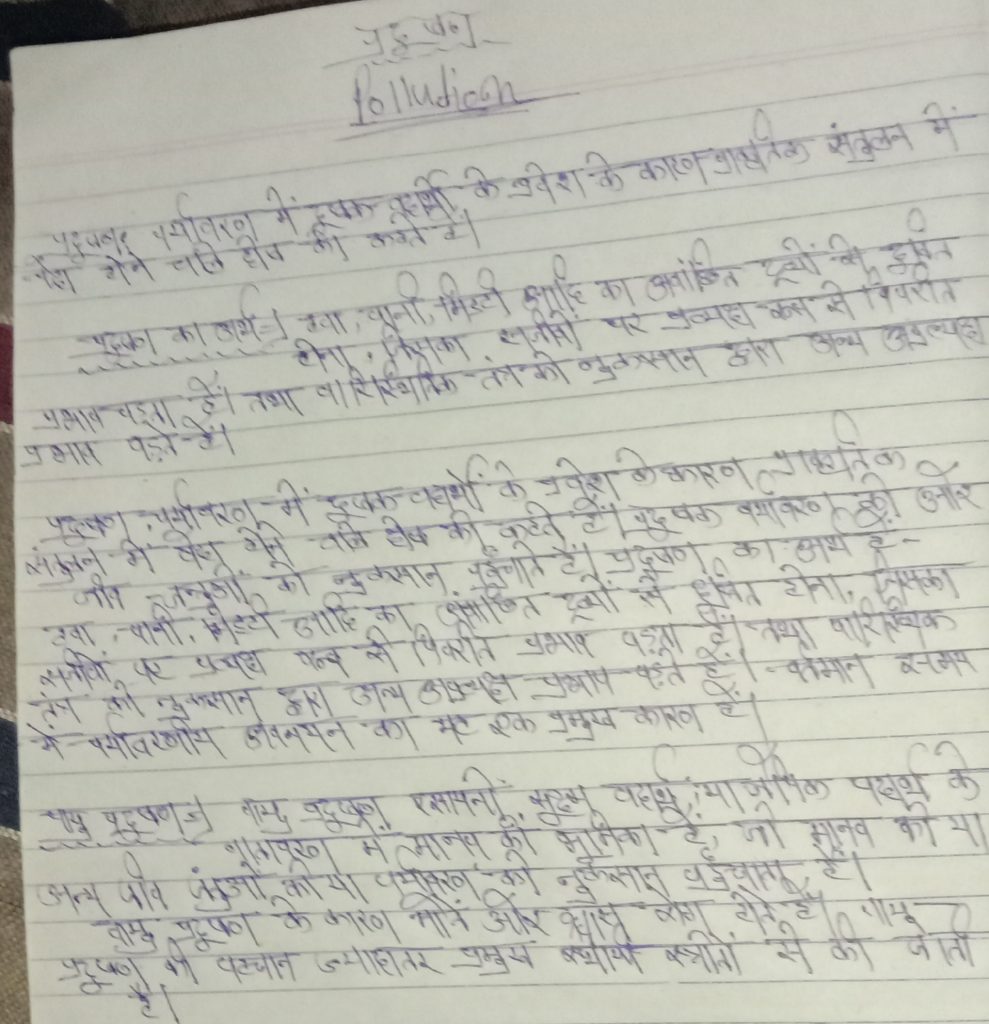 प्रदूषण
Polludion
प्रदूषण पर्यावरण में दूषक पदार्थों के प्रवेश के कारण प्राकृतिक संतुलन में
पैदा होने वाले दोष को कहते हैं।
प्रदूषण का अर्थ⇒ हवा, पानी, मिट्टी आदि का अवांछित द्रव्यों से दूषित
होना, जिसका सजीवों पर प्रत्यक्ष रूप से विपरीत
प्रभाव पड़ता हैं। तथा पारिस्थितिक तंत्र को नुकसान द्वारा अन्य अप्रत्यक्ष
प्रभाव पड़ते हैं।
प्रदूषण, पर्यावरण में दूषक पदार्थों के प्रवेश के कारण प्राकृतिक
संतुलन में पैदा होने वाले दोष को कहते हैं। प्रदूषक पर्यावरण को और
जीव जन्तुओं को नुकसान पहुँचाते हैं। प्रदूषण का अर्थ है-
हवा, पानी, मिट्टी आदि का अवांछित द्रव्यों से दूषित होना, जिसका
सजीवों पर प्रत्यक्ष रूप से विपरीत प्रभाव पड़ता हैं। तथा पारिस्थितिक
तंत्र को नुकसान द्वारा अन्य अप्रत्यक्ष प्रभाव पड़ते हैं। वर्तमान समय
में पर्यावरणीय अवनयन का यह एक प्रमुख कारण हैं।
वायु प्रदूषण⇒ वायु प्रदूषण रसायनों, सूक्ष्म पदार्थ, या जैविक पदार्थ के
वातावरण में मानव की भूमिका है, जो मानव को या
अन्य जीव जंतुओं को या पर्यावरण को नुकसान पहुँचाता है।
वायु प्रदूषण के कारण मौतें और श्वास रोग होते हैं। वायु
प्रदूषण की पहचान ज्यादातर प्रमुख स्थायी स्त्रोतों से की जाती
है।